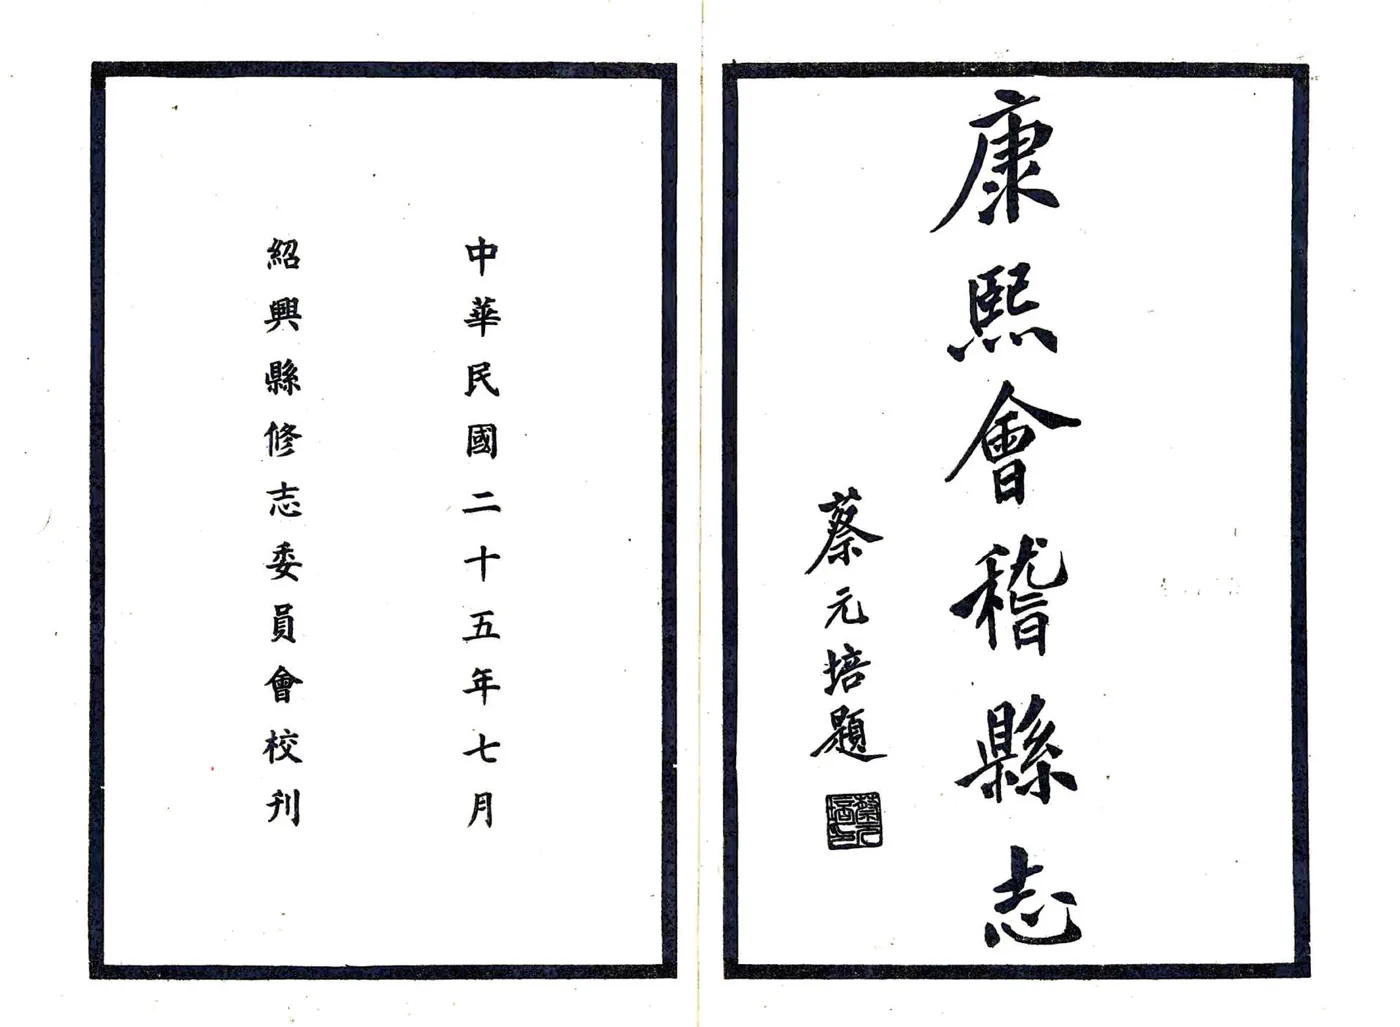 康熙會稽縣志
蔡元培題
蔡元培印
中華民國二十五年七月
紹興縣修志委員會校刊